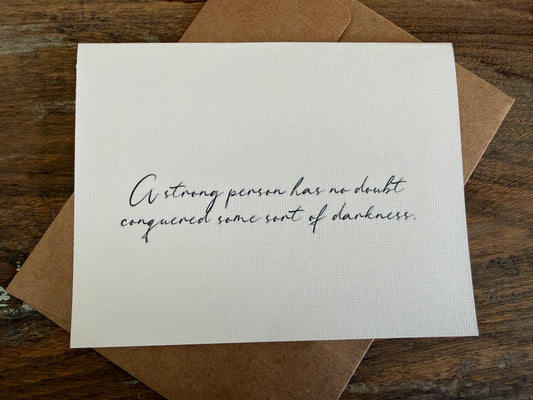 A strong person has no doubt
conquered some sort of darkness.